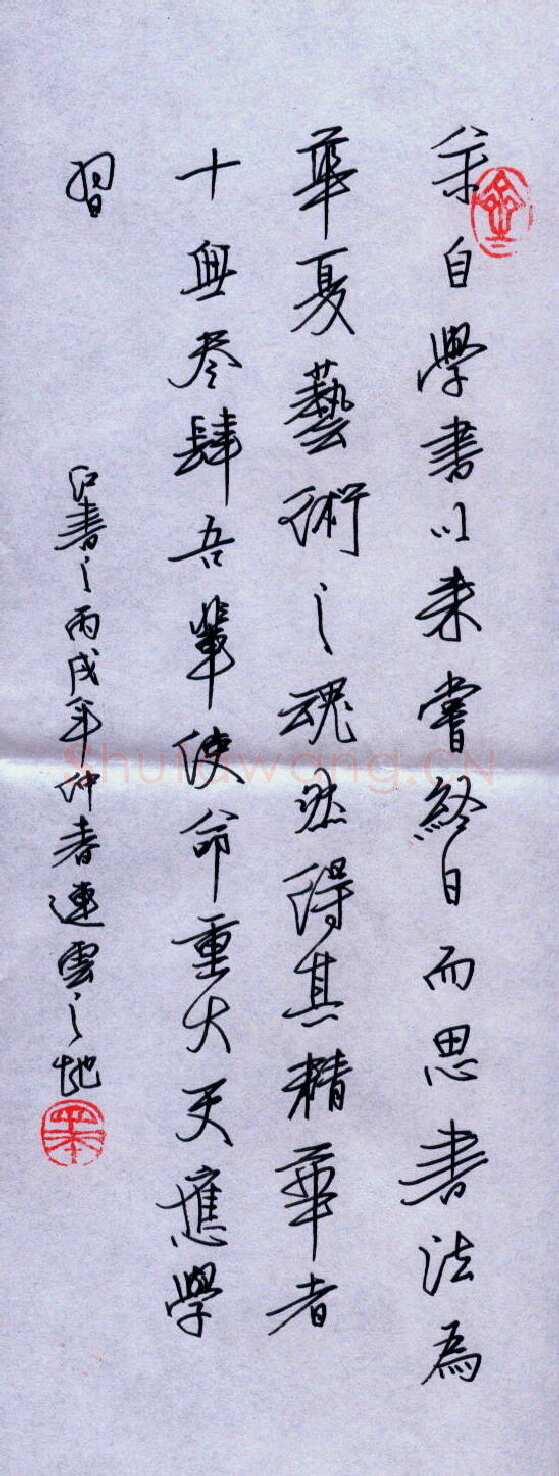 余自學書以來嘗終日而思書法為
華夏藝術之魂然得其精華者
十無叁肆吾輩使命重大天應學
習
江書之丙戌年仲春連雲之地
Shufawang.CN